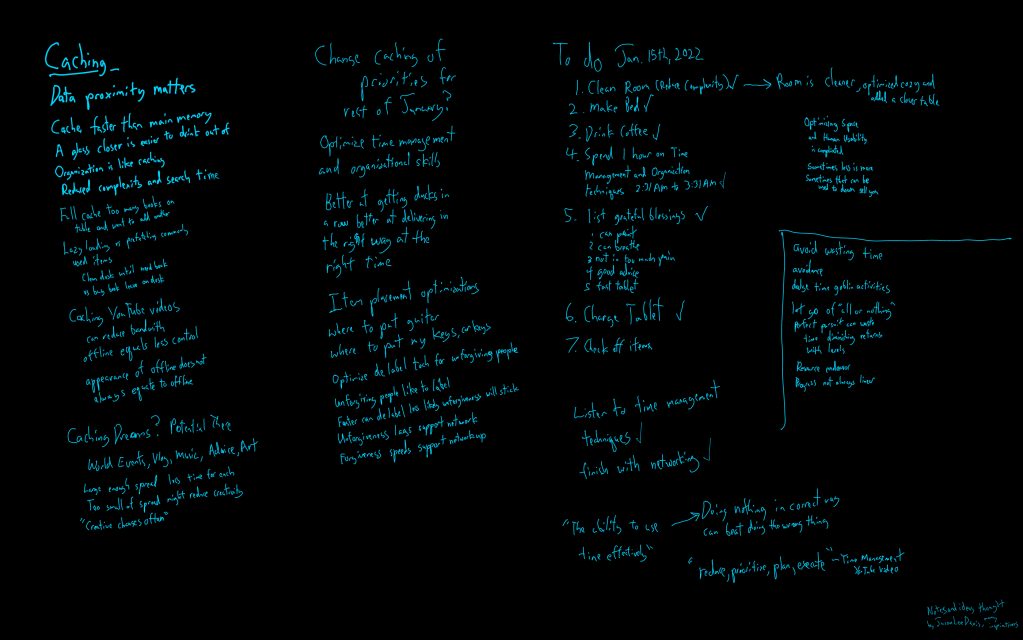 Caching
Data proximity matters
Cache faster than main memory
A glass closer is easier to drink out of
Organization is like caching
Reduced complexity and search time
Full cache too many books on
table and want to add another
Lazy loading vs prefetching commonly
used items
Clean desk until need book
vs busy book have on desk
Caching YouTube videos
can reduce bandwith
offline equals less control
appearance of offline does not
always equate to offline
Caching Dreams? Potential There
World Events, Vlog, Music, Advice, Art
Large enough spread less time for each
Too small of spread might reduce creativity
"Creative changes often"
Change caching of
priorities for
rest of January?
Optimize time management
and organizational skills
Better at getting ducks in
a row better at delivering in
the right way at the
right time
Item placement optimizations
where to put guitar
where to put my keys, or keys
Optimize delabel tech for unforgiving people
Unforgiving people like to label
Faster can delabel less likely unforgiveness will stick
Unforgiveness lags support network
Forgiveness speeds support network up
To do Jan. 15th, 2022
1. Clean Room (Reduce Complexity) ✓ → Room is cleaner, optimized cozy and
added a closer table
2. Make Bed ✓
3. Drink Coffee ✓
4. Spend 1 hour on Time
Management and Organization
techniques 2:31AM to 3:31AM ✓
5. list grateful blessings ✓
1 can paint
2 can breathe
3 not in too much pain
4 good advice
5 fast tablet
6. Charge Tablet ✓
7. Check off items
Optimizing Space
and Human Usability
is complicated
Sometimes less is more
Sometimes that can be
used to down sell you
avoid wasting time
avoidance
dodge time goblin activities
let go of "all or nothing"
perfect pursuit can waste
time diminishing returns
with levels
Resource
Progress not always linear
Listen to time management
techniques ✓
finish with networking ✓
"The ability to use
time effectively"
→ Doing nothing in correct way
can beat doing the wrong thing
"reduce, prioritize, plan, execute" - Time Management
YouTube video
Notes and ideas thought
by Jason Lee Davis,